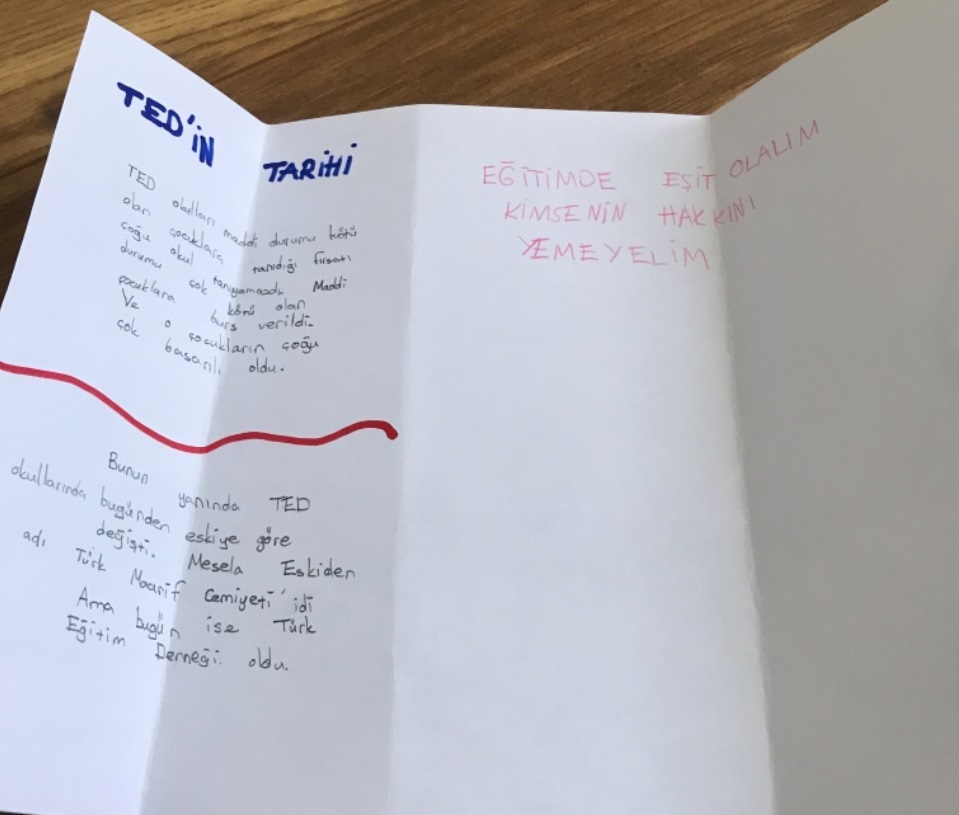 TED'iN TARiHi
TED okulları maddi durumu kötü
olan çocuklara tanıdığı fırsatı
çoğu okul tanıyamazdı. Maddi
durumu çok kötü olan
çocuklara burs verildi.
Ve o çocukların çoğu
çok başarılı oldu.
Bunun yanında TED
okullarında bugünden eskiye göre
değişti. Mesela Eskiden
adı Türk Maarif Cemiyeti'idi
Ama bugün ise Türk
Eğitim Derneği. oldu.
EĞİTİMDE EŞİT OLALIM
KİMSENİN HAKKINI
YEMEYELİM